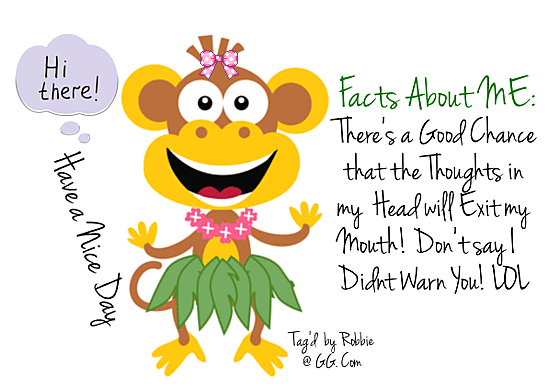 Hi
there!
Have a Nice Day
Facts About ME:
There's a Good Chance
that the Thoughts in
my Head will Exit my
Mouth! Don't say I
Didnt Warn You! LOL
Tag'd by Robbie
@ GG.Com